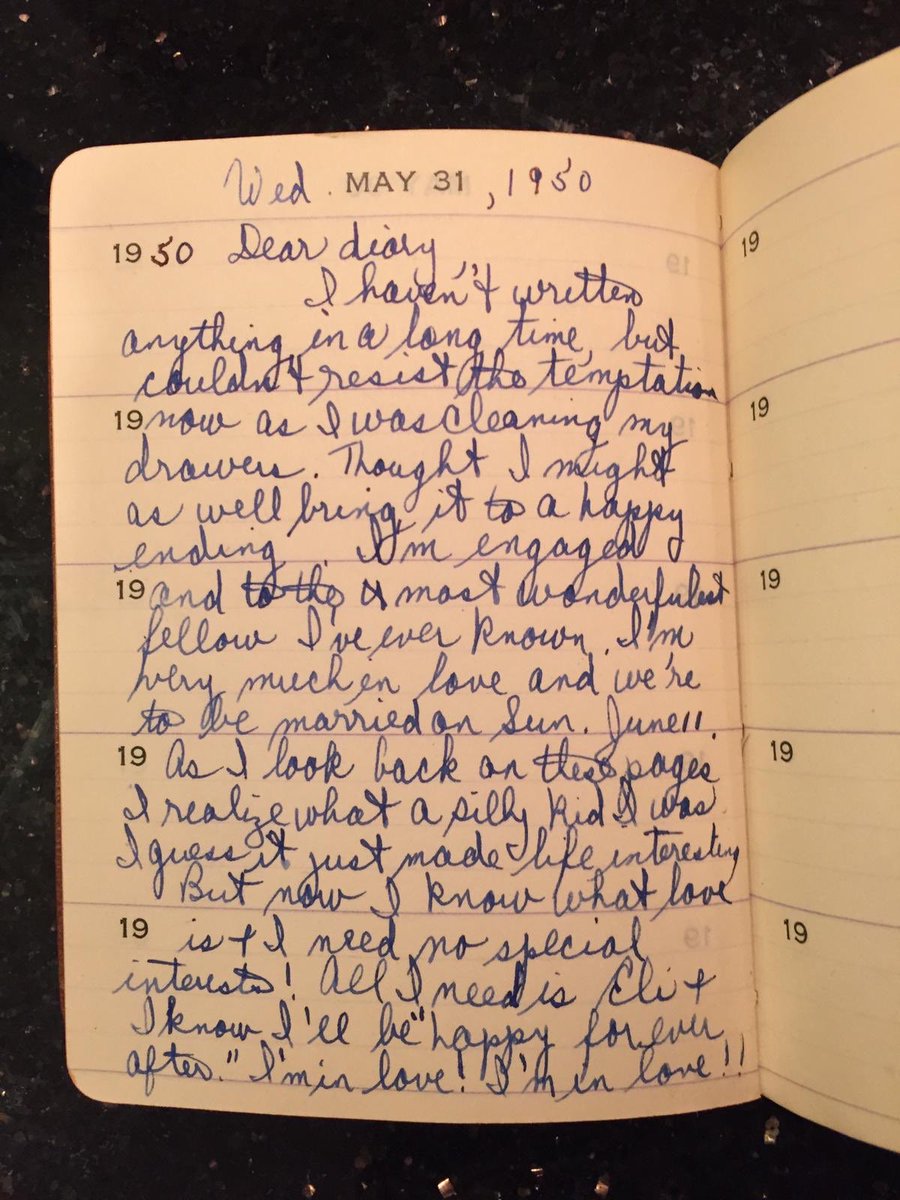 Wed. MAY 31, 1950
1950 Dear diary,
I haven't written
anything in a long time, but
couldn't resist the temptation
19 now as I was cleaning my
drawers. Thought I might
as well bring it to a happy
ending. I'm engaged
19 and to the most wonderfulest
fellow I've ever known. I'm
very much in love and we're
to be married on Sun. June 11.
19 As I look back on these pages
I realize what a silly kid I was.
I guess it just made life interesting
But now I know what love
19 is + I need no special
interests! All I need is Eli +
I know I'll be "happy for ever
after." I'm in love! I'm in love!!
19
19
19
19
19